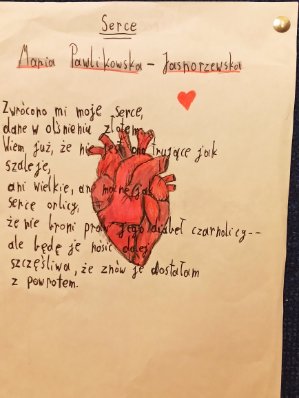 Serce
Maria Pawlikowska - Jasnorzewska
Zwrócono mi moje serce,
dane w olśnieniu złotem.
Wiem już, że nie jest ono trujące jak
szaleje,
ani wielkie, ani mocne jak
serce orlicy,
że nie broni praw jego diabeł czarnolicy--
ale będę je nosić dalej
szczęśliwa, że znów je dostałam
z powrotem.